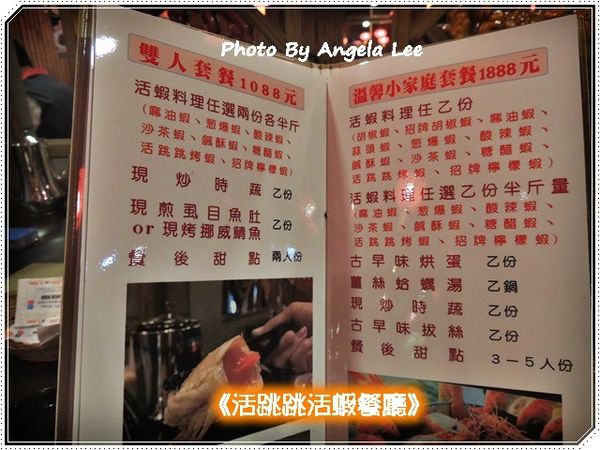 Photo By Angela Lee
雙人套餐1088元
活蝦料理任選兩份各半斤
(麻油蝦、葱爆蝦、酸辣蝦、
沙茶蝦、鹹酥蝦、糖醋蝦、
活跳跳烤蝦、招牌檸檬蝦)
現炒時蔬 乙份
現煎虱目魚肚
or 現烤挪威鯖魚 乙份
餐後甜點 兩人份
溫馨小家庭套餐1888元
活蝦料理任乙份
(胡椒蝦、招牌胡椒蝦、麻油蝦、
蒜頭蝦、葱爆蝦、酸辣蝦、
鹹酥蝦、沙茶蝦、糖醋蝦、
活跳跳烤蝦、招牌檸檬蝦)
活蝦料理任選乙份半斤量
(麻油蝦、葱爆蝦、酸辣蝦、
沙茶蝦、鹹酥蝦、糖醋蝦、
活跳跳烤蝦、招牌檸檬蝦)
古早味烘蛋 乙份
薑絲蛤蠣湯 乙鍋
現炒時蔬 乙份
古早味拔絲 乙份
餐後甜點 3－5人份
《活跳跳活蝦餐廳》